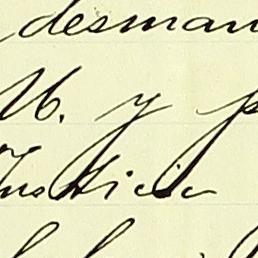 desman
U. y p
Justicia